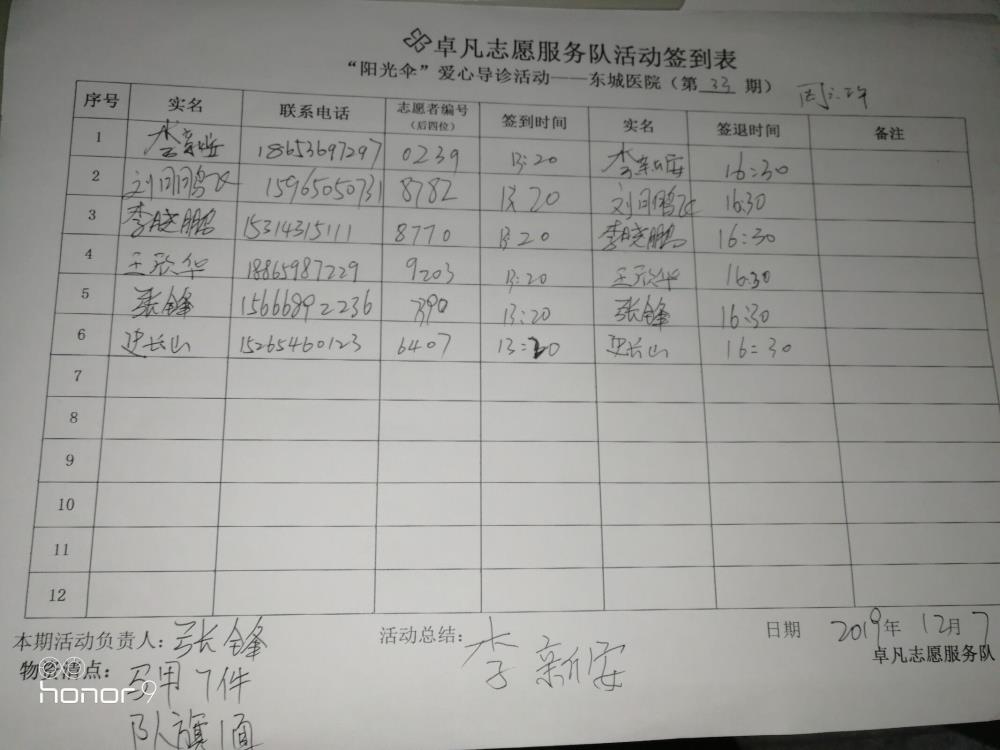 卓凡志愿服务队活动签到表
“阳光伞”爱心导诊活动——东城医院（第 33 期） 周六下午
序号 实名 联系电话 志愿者编号（后四位） 签到时间 实名 签退时间 备注
1 李新安 18653697297 0239 13:20 李新安 16:30
2 刘同同鹏飞 15965050731 8782 13:20 刘同鹏飞 16:30
3 李晓鹏 15314315111 8770 13:20 李晓鹏 16:30
4 王欣华 18865987229 9203 13:20 王欣华 16:30
5 张锋 15666892236 890 13:20 张锋 16:30
6 史长山 15265460123 6407 13:20 史长山 16:30
7
8
9
10
11
12
本期活动负责人：张锋 活动总结：李新安 日期 2019年 12月 7
卓凡志愿服务队
物资清点：马甲7件
队旗1面
honor 9